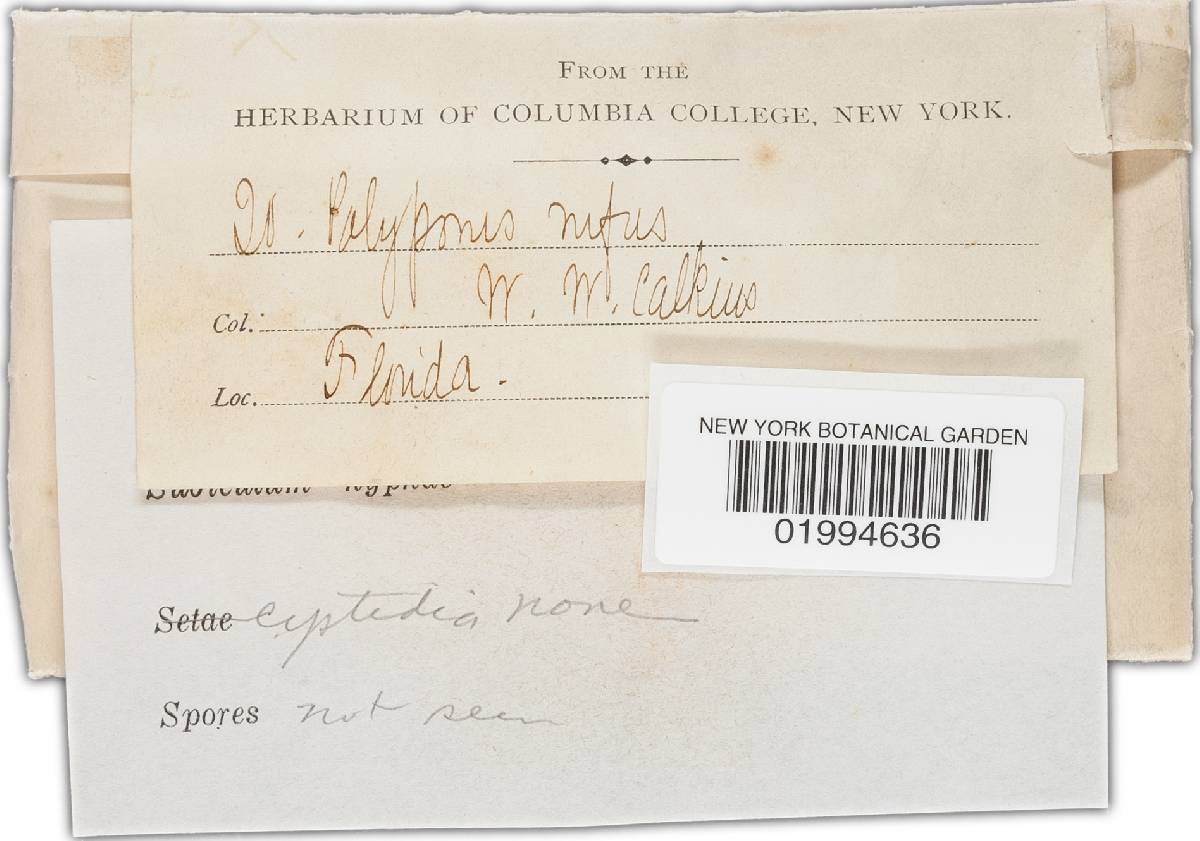 FROM THE
HERBARIUM OF COLUMBIA COLLEGE, NEW YORK.
20. Polyporus rufus
Col. W. W. Calkins
Loc. Florida.
NEW YORK BOTANICAL GARDEN
01994636
Subiculum hyphae
Setae Cystidia none
Spores not seen